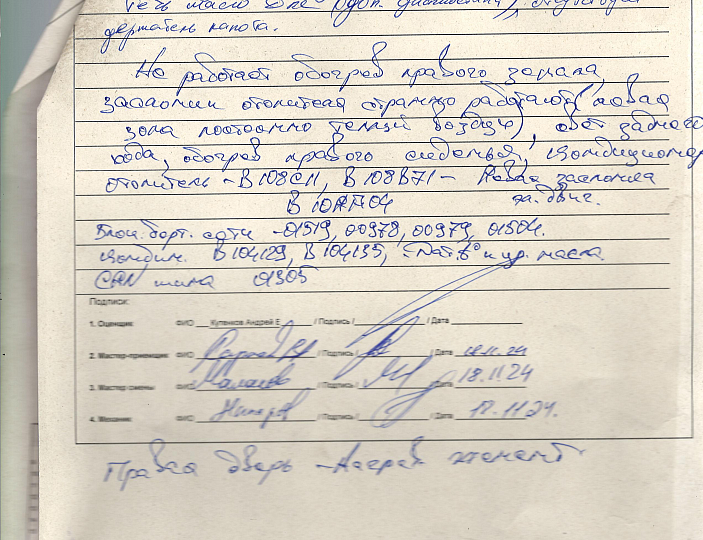 течь масла ДВС (доп. диагностика),
держатель капота.
Не работает обогрев правого зеркала,
заслонки отопителя странно работают (левая
зона постоянно теплый воздух), свет заднего
хода, обогрев правого сиденья, кондиционер
отопитель - B108C11, B108B71 - Левая заслонка
B10AA04 на. двиг.
Блок. борт. сети - 01519, 00978, 00979, 01504.
кондиц. B104129, B104135, - Дат. t° и ур. масла.
CAN шина 01305
Подписи:
1. Оценщик ФИО Купенков Андрей Е / Подпись / / Дата
2. Мастер-приемщик ФИО / Подпись / / Дата 18.11.24
3. Мастер смены ФИО / Подпись / / Дата 18.11.24
4. Механик ФИО / Подпись / / Дата 18.11.24.
Правая дверь -